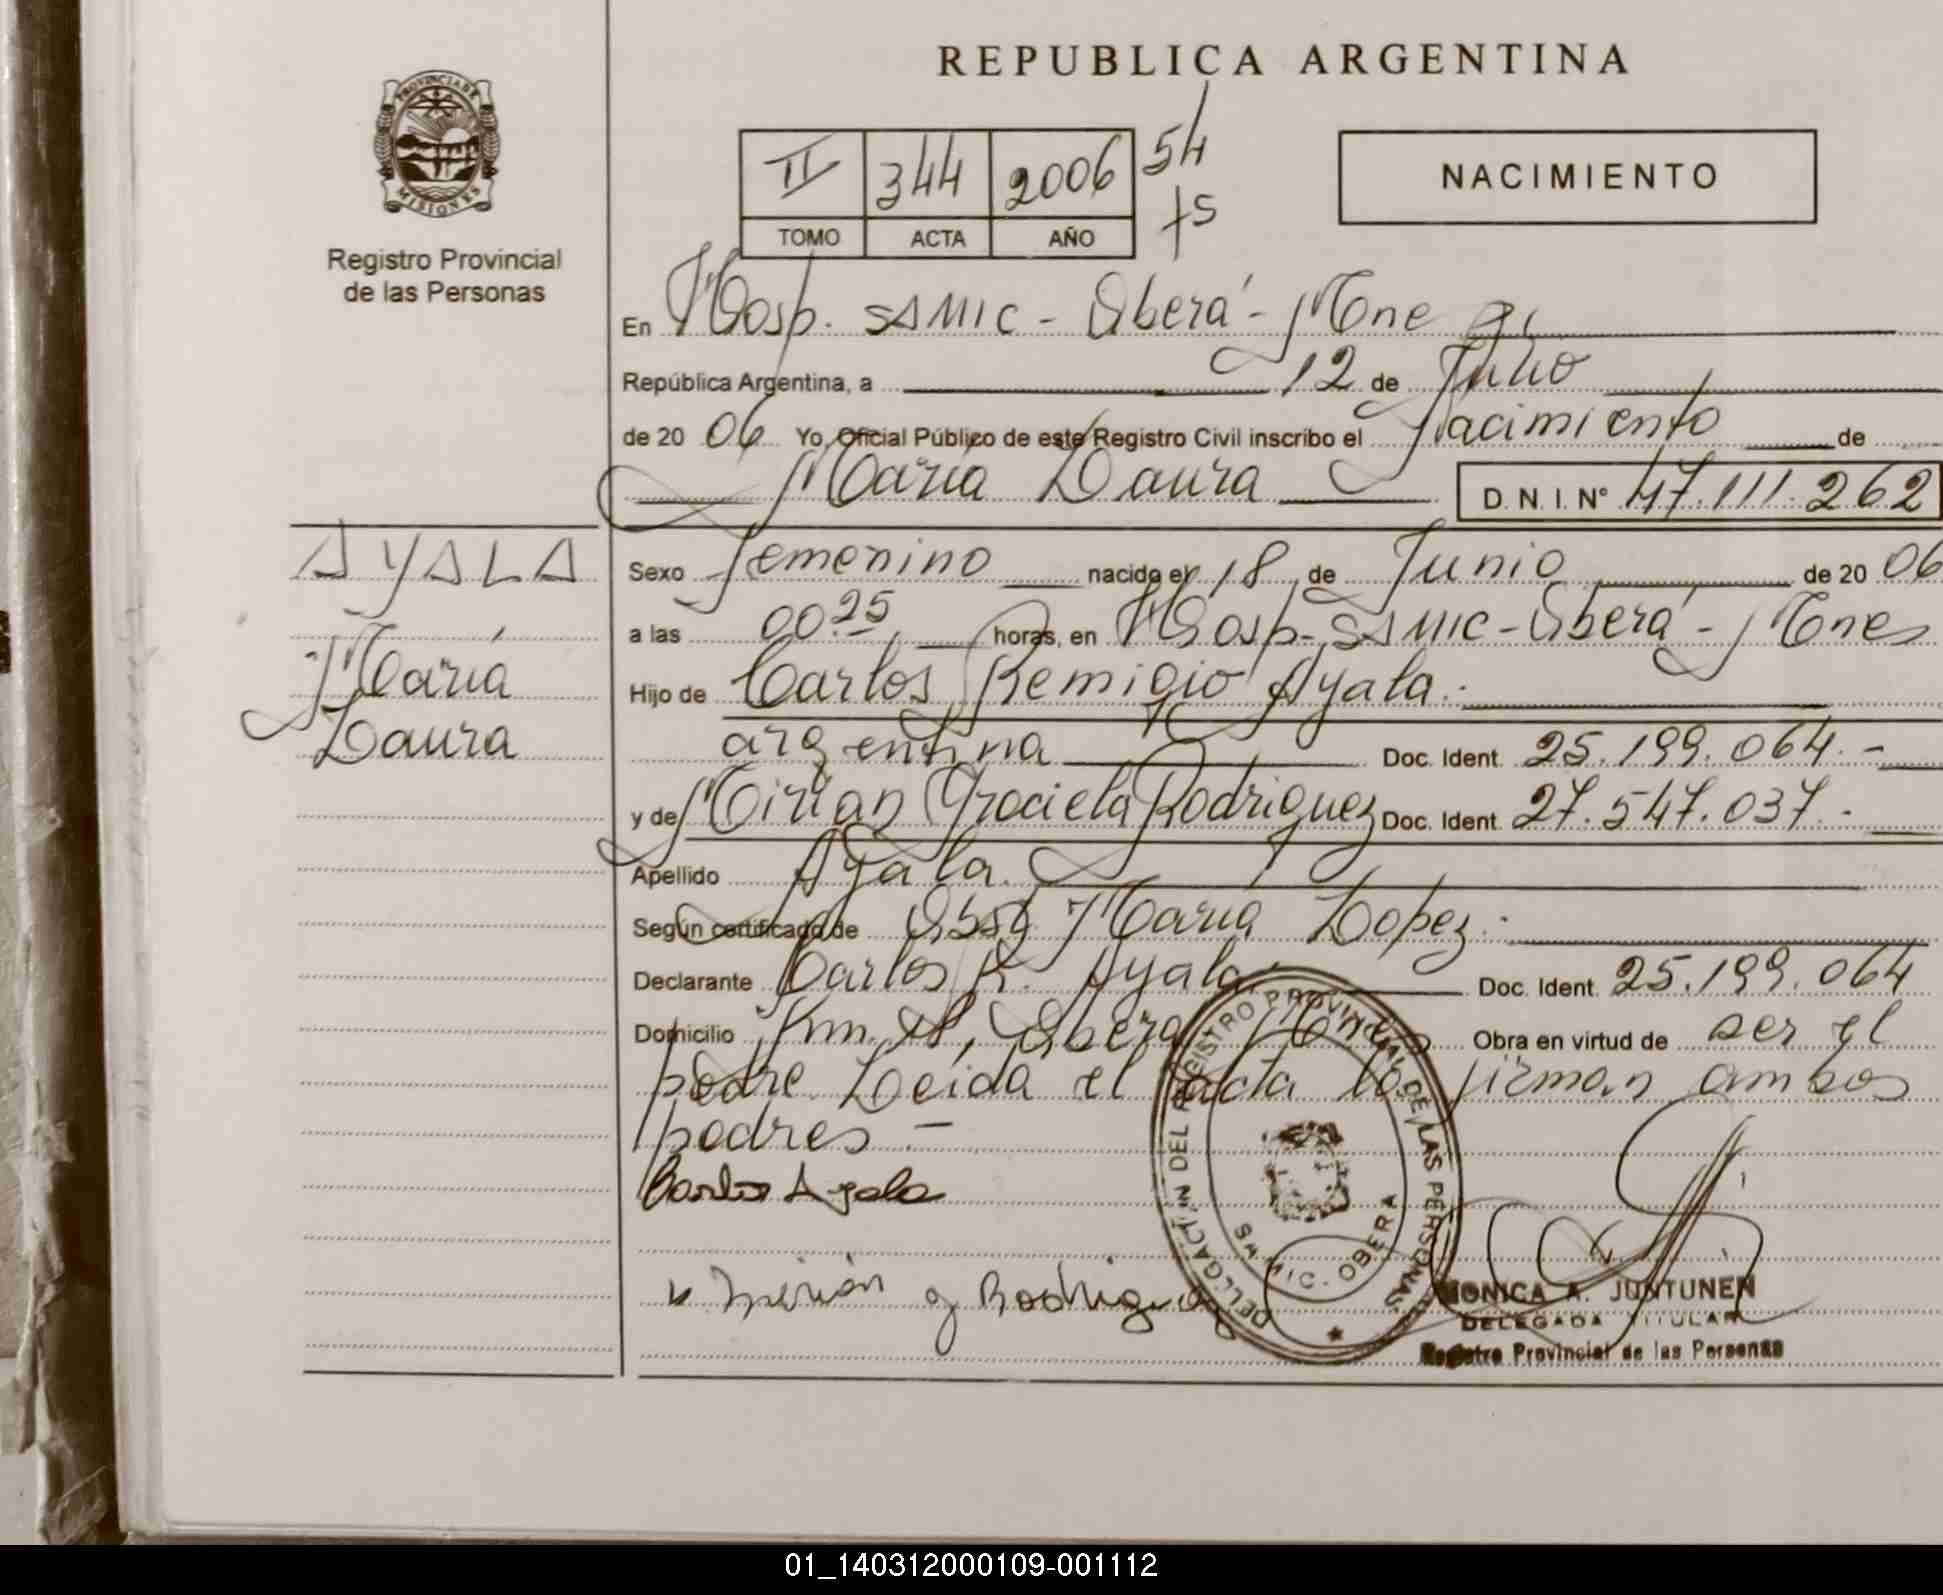 REPUBLICA ARGENTINA
PROVINCIA DE
MISIONES
Registro Provincial
de las Personas
II 344 2006 54
TOMO ACTA AÑO fs
NACIMIENTO
En Hosp. SAMIC - Oberá - Mnes
República Argentina, a 12 de Julio
de 20 06 Yo, Oficial Público de este Registro Civil inscribo el Nacimiento de
María Laura D. N. I. N° 47.111.262
AYALA
María
Laura
Sexo Femenino nacido el 18 de Junio de 20 06
a las 00.25 horas, en Hosp. SAMIC - Oberá - Mnes
Hijo de Carlos Remigio Ayala.-
argentina Doc. Ident. 25.199.064.-
y de Mirian Graciela Rodriguez Doc. Ident. 27.547.037.-
Apellido Ayala.
Según certificado de Obst María Lopez.-
Declarante Carlos R. Ayala.- Doc. Ident. 25.199.064
Domicilio Km. 8, Oberá Mnes Obra en virtud de ser el
padre Leida el acta la firman ambos
padres.-
Carlos Ayala
Mirián g Rodriguez
DELEGACION DEL REGISTRO PROVINCIAL DE LAS PERSONAS
OBERA
MONICA A. JUNTUNEN
DELEGADA TITULAR
Registro Provincial de las Personas
01_140312000109-001112